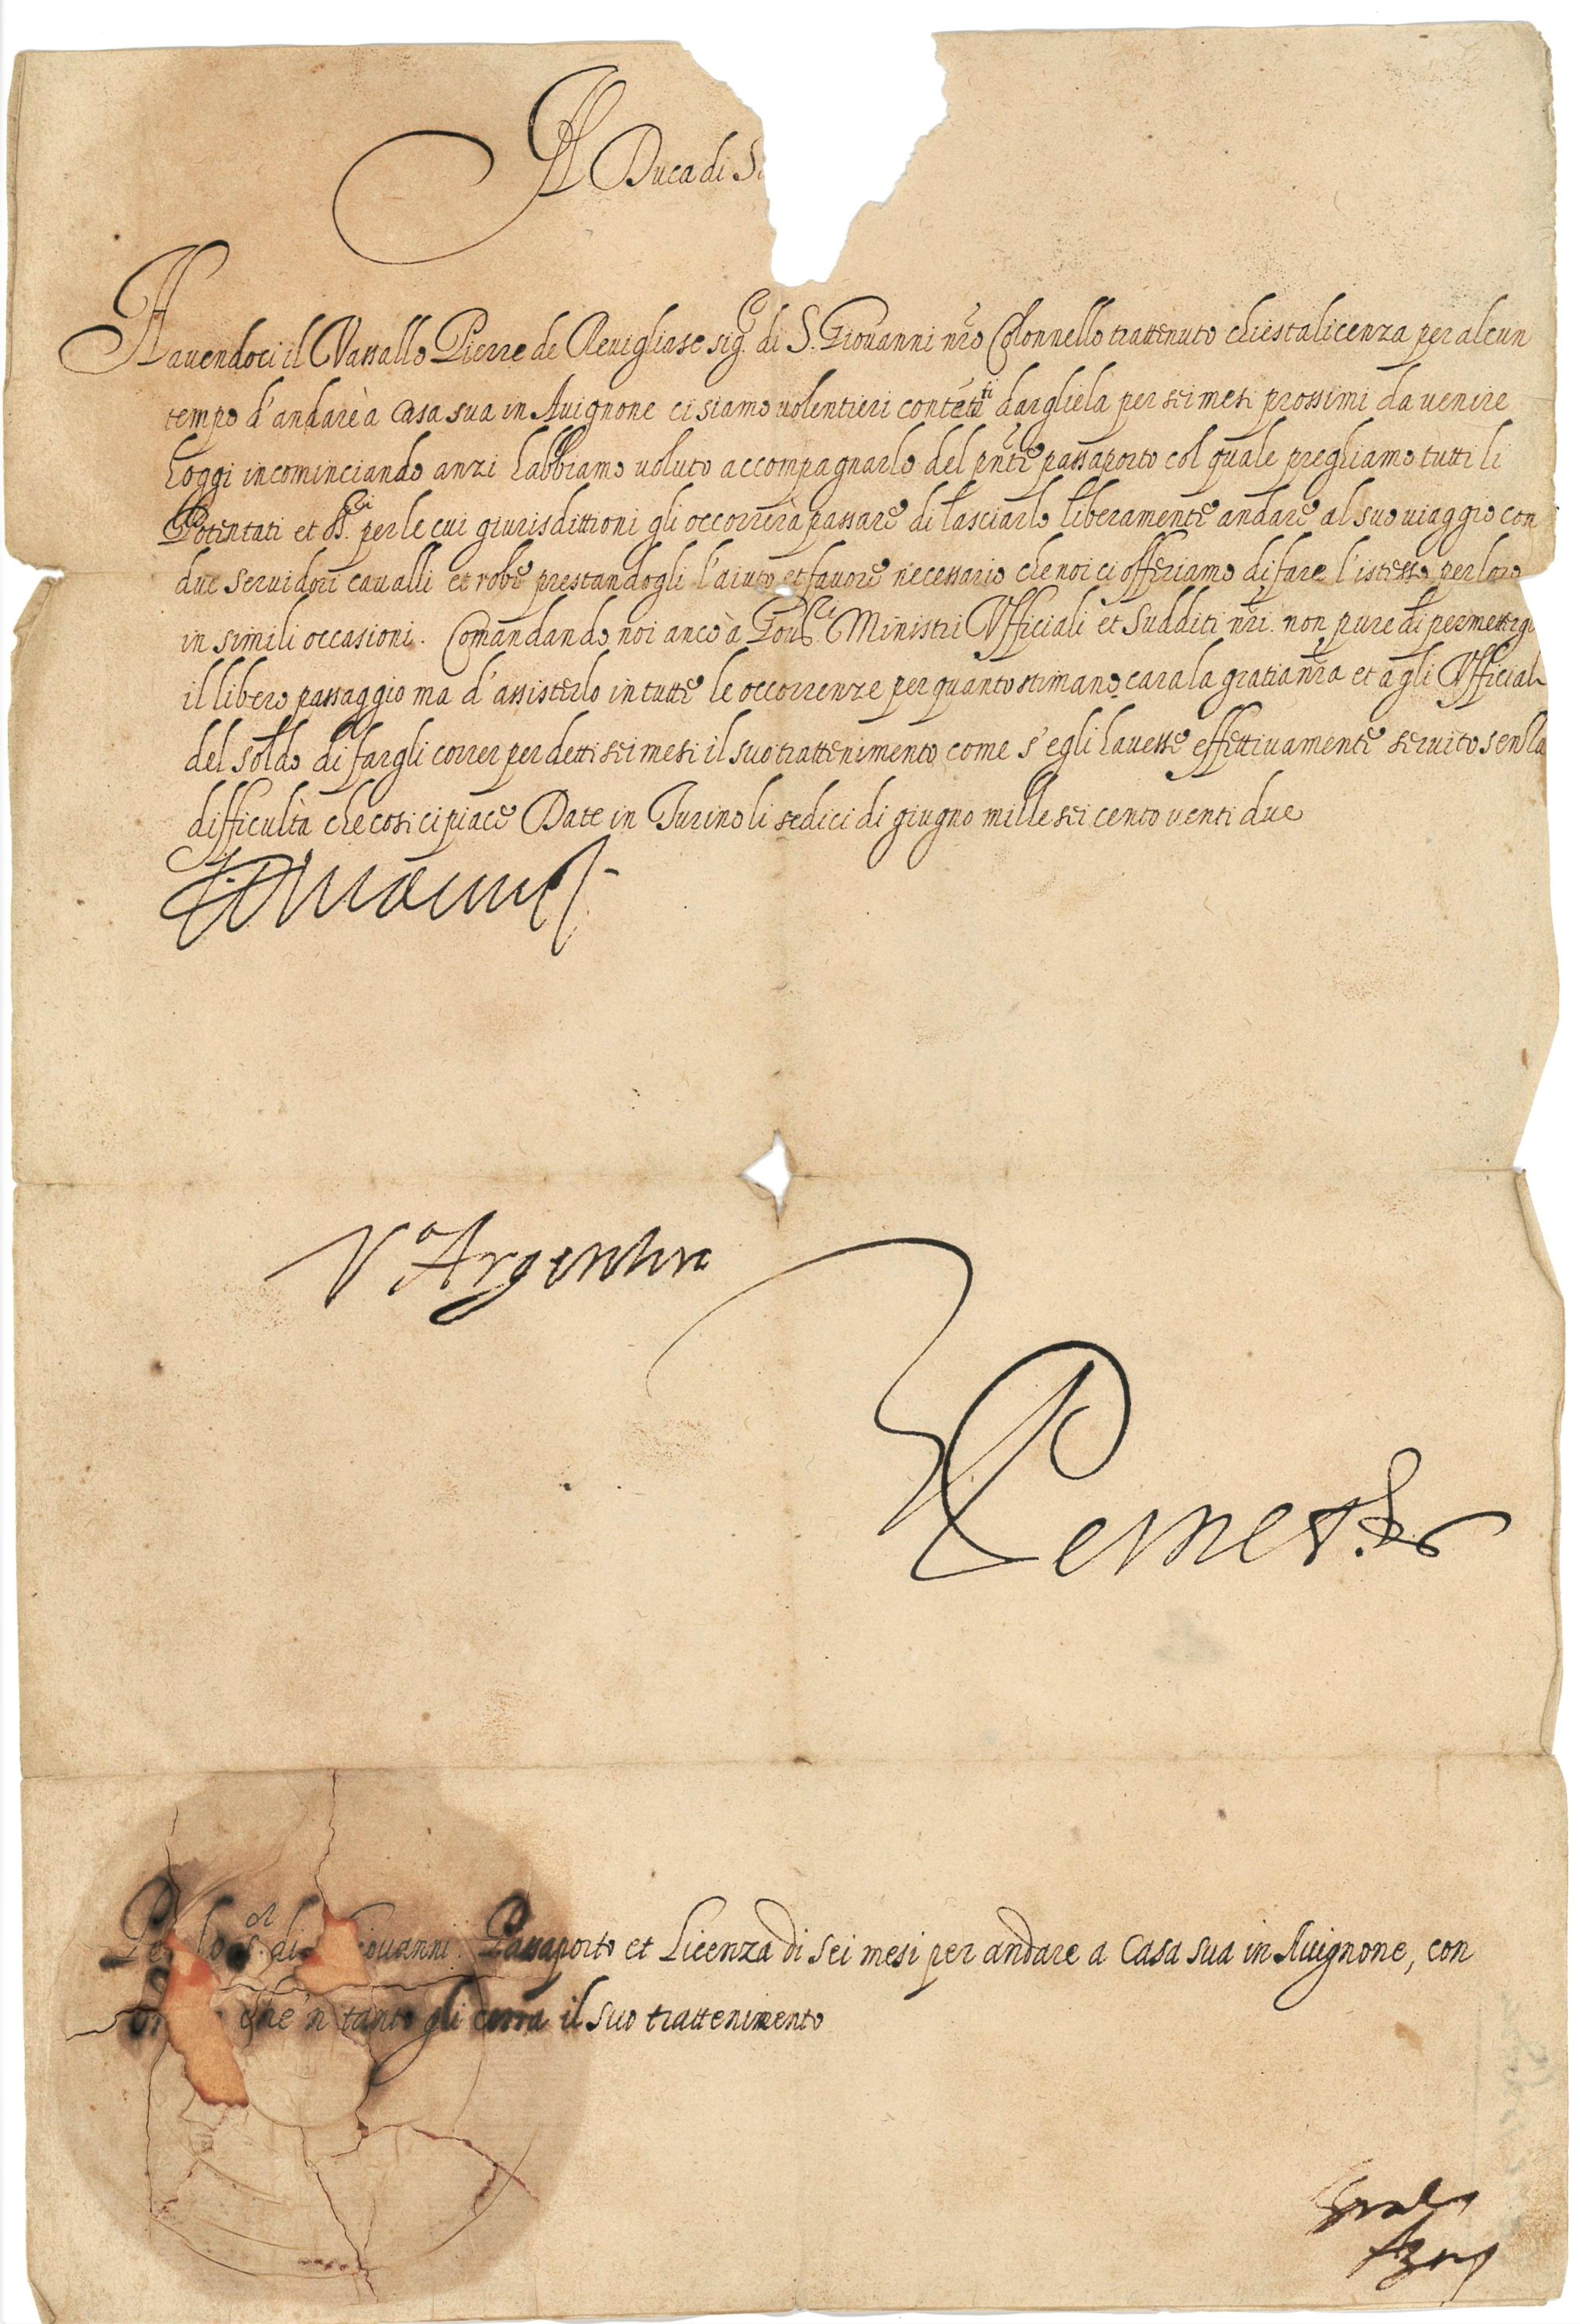 Il Duca di S
Havendoci il Vassallo Pierre de Revigliasc sig.re di S. Giovanni nro Colonnello trattenuto chiesta licenza per alcun
tempo d'andare à casa sua in Avignone ci siamo volentieri contētati dargliela per sei mesi prossimi da venire
hoggi incominciando anzi habbiamo voluto accompagnarlo del pnte passaporto col quale preghiamo tutti li
Potentati et SS.ri per le cui giurisdittioni gli occorrerà passare di lasciarlo liberamente andare al suo viaggio con
due servidori cavalli et robe prestandogli l'aiuto et favore necessario che noi ci offeriamo di fare l'istesso per loro
in simili occasioni. Comandando noi anco à Gov.ri Ministri Ufficiali et sudditi nri. non pure di permettergli
il libero passaggio ma d'assisterlo in tutte le occorrenze per quanto stimano cara la gratia nra et agli Ufficiali
del soldo di fargli correr per detti sei mesi il suo trattenimento come s'egli havesse effettivamente servito senza
difficultà che cosi ci piace Date in Turino li sedici di giugno mille sei cento venti due
V.a Argentero
Giovanni. Passaporto et Licenza di sei mesi per andare a Casa sua in Avignone, con
che'n tanto gli corra il suo trattenimento